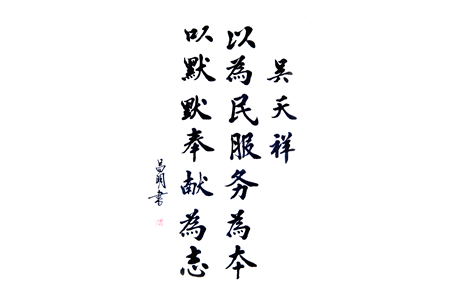 吴天祥
以為民服务為本
以默默奉献為志
昌明書